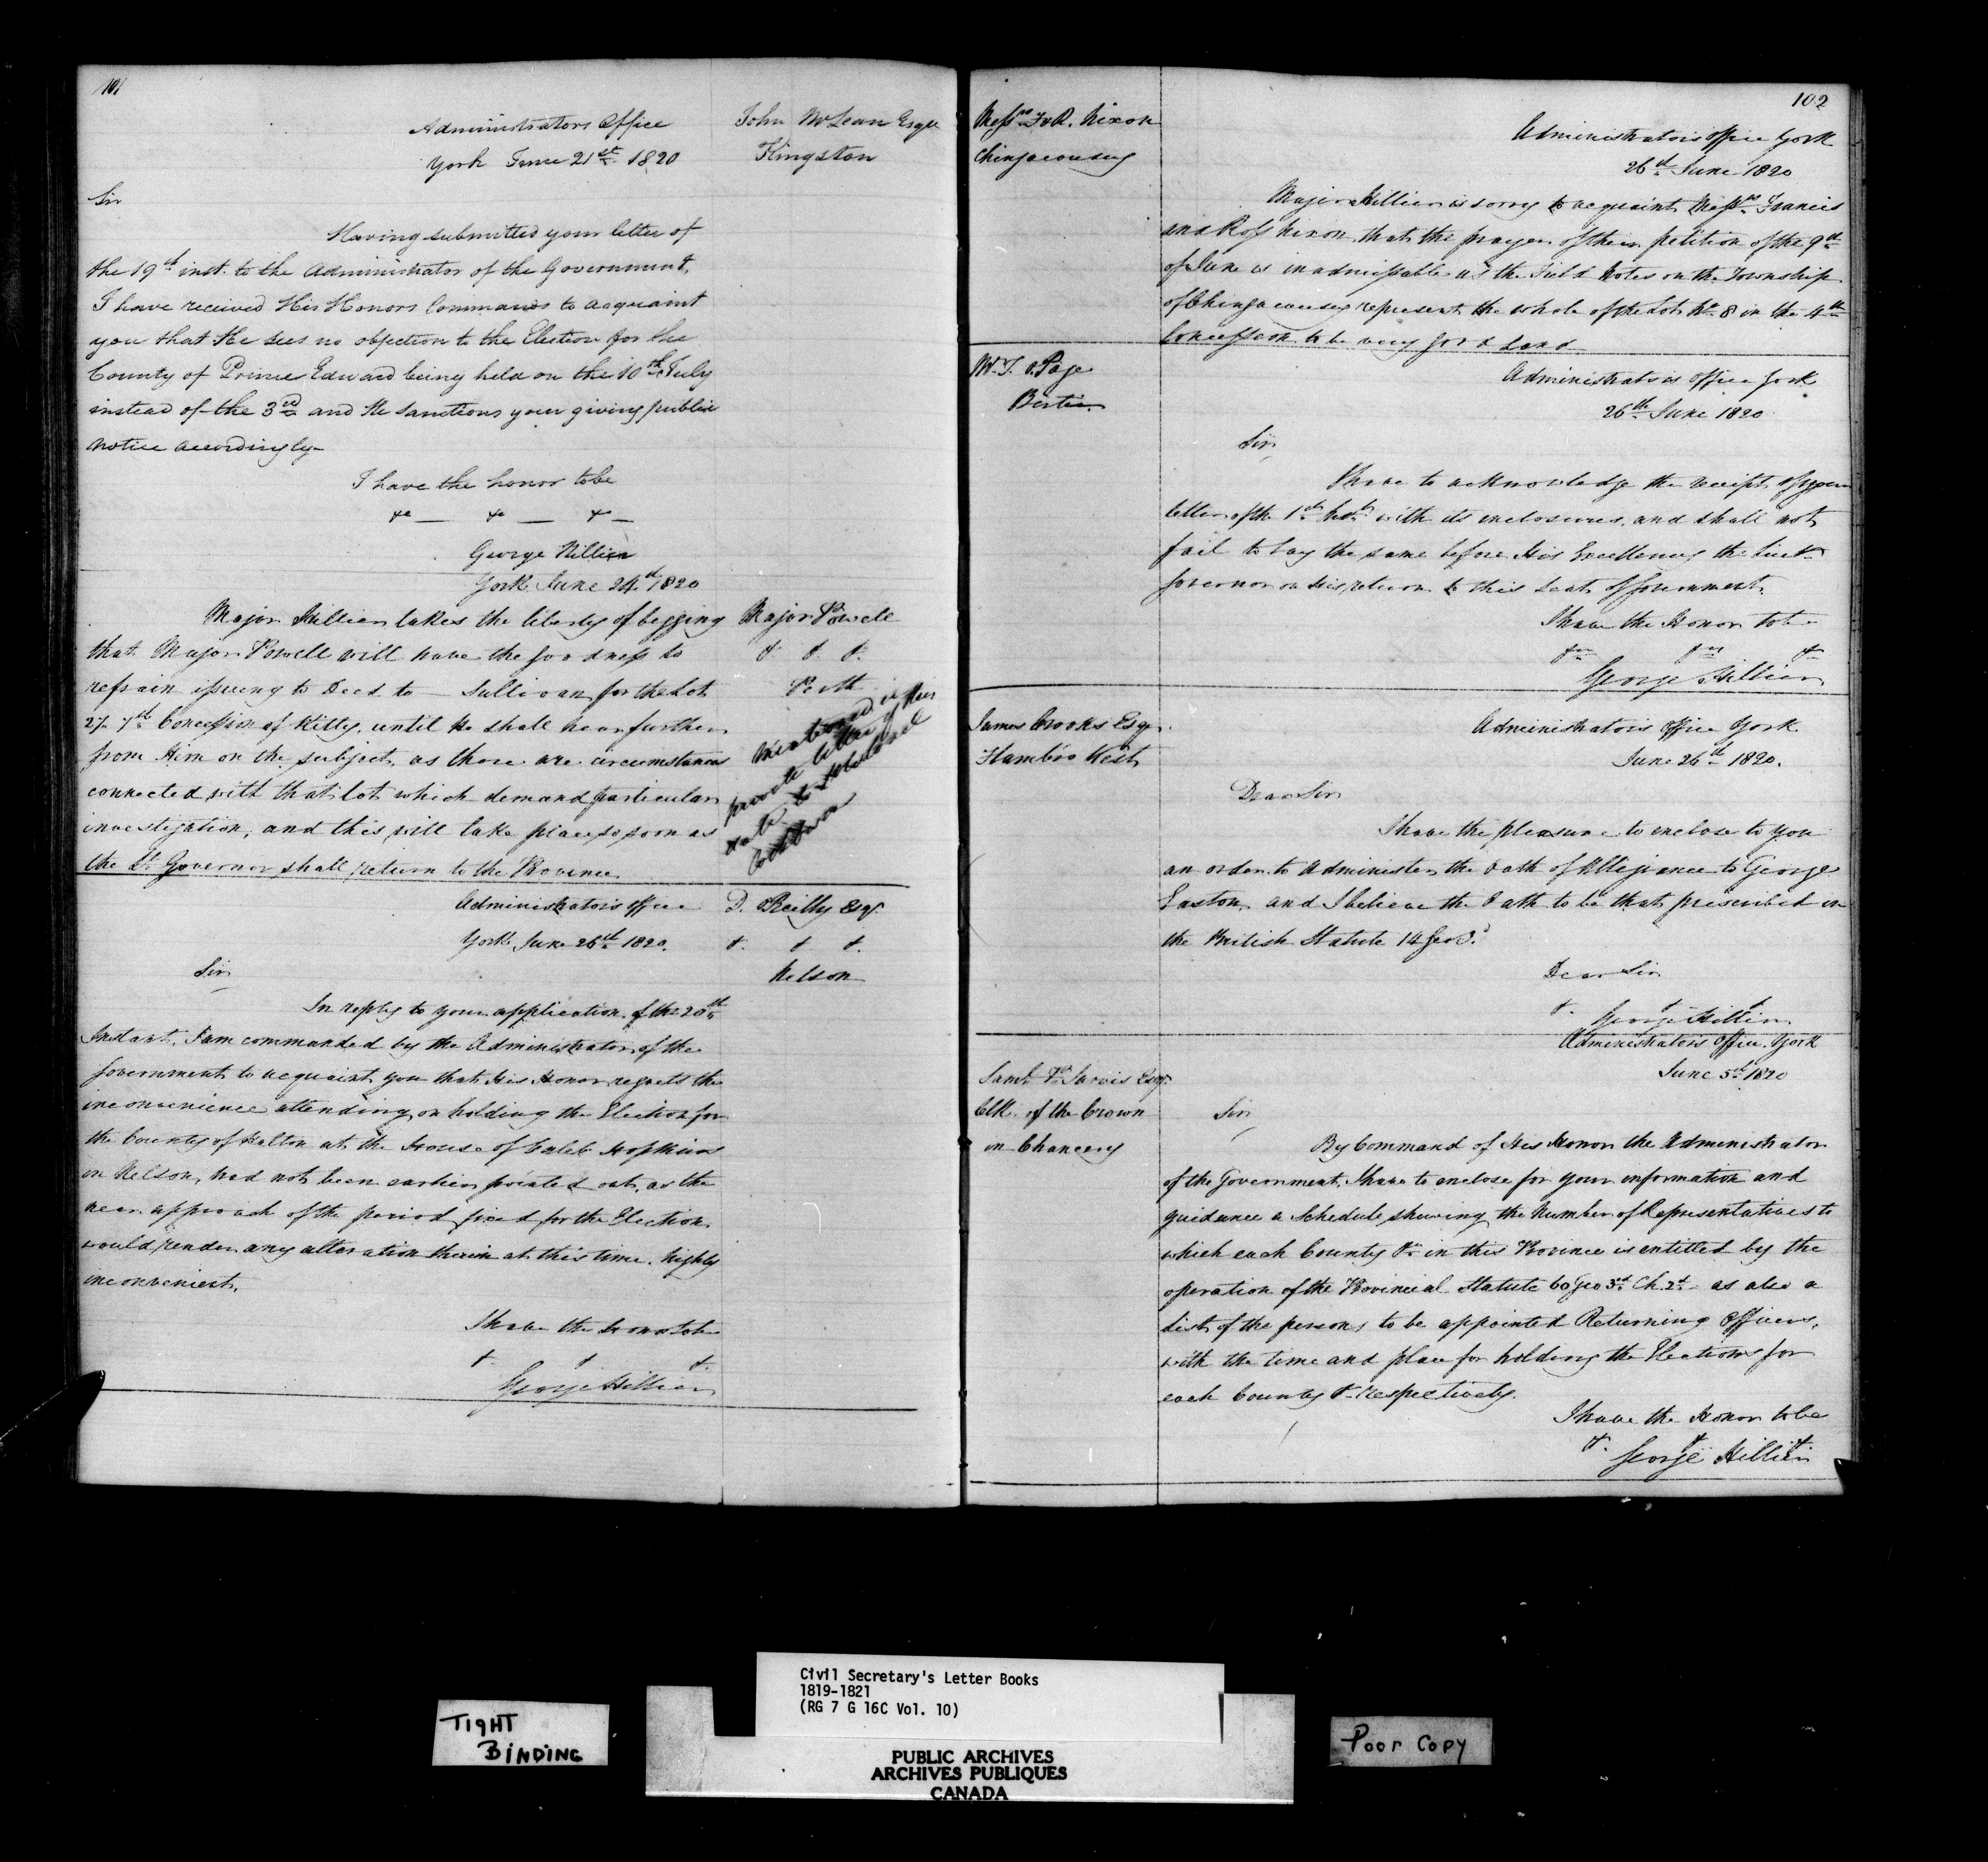 101
Administrators Office
York June 21st 1820
John McLean Esqr
Kingston
Sir
Having submitted your letter of
the 19th inst. to the Administrator of the Government,
I have received His Honors Commands to acquaint
you that He sees no objection to the Election for the
County of Prince Edward being held on the 10th July
instead of the 3rd and He sanctions your giving public
notice accordingly
I have the honor to be
&c — &c — &c —
George Hillier
York June 24th 1820
Major Powell
&. &. &.
Perth
Major Hillier takes the liberty of begging
that Major Powell will have the goodness to
refrain issuing to Deed to — Sullivan for the Lot
27. 7th Concession of Kitty, until he shall hear further
from Him on the subject, as there are circumstances
connected with that lot which demand particular
investigation, and this will take place so soon as
the Lt Governor shall return to the Province
private letter
Administrators office
York June 26th 1820.
D. OReilly Esqr.
&. &. &.
Nelson
Sir
In reply to your application of the 20th
Instant. I am commanded by the Administrator of the
Government to acquaint you that His Honor regrets the
inconvenience attending on holding the Election for
the County of Halton at the House of Caleb Hopkins
in Nelson, had not been earlier pointed out, as the
near approach of the period fixed for the Election
would render any alteration therein at this time, highly
inconvenient.
I have the honor to be
&. &. &.
George Hillier
102
Messrs F & R. Nixon
Chingacousey
Administrators office York
26th June 1820
Major Hillier is sorry to acquaint Messrs Francis
and Ross Nixon that the prayer of their petition of the 9th
of June is inadmissable as the Field Notes on the Township
of Chingacousey represent the whole of the Lot No 8 in the 4th
Concession to be very good Land
Mr T. Page
Bertie
Administrators office York
26th June 1820
Sir
I have to acknowledge the receipt of your
letter of the 1st with its inclosures, and shall not
fail to lay the same before His Excellency the Lieut
Governor on His return to this Seat of Government.
I have the Honor to be
George Hillier
James Crooks Esqr.
Flambro West
Administrators Office York
June 26th 1820.
Dear Sir
I have the pleasure to enclose to you
an order to Administer the Oath of Allegiance to George
Easton, and I believe the Oath to be that prescribed in
the British Statute 14 Geo 3d
Dear Sir
&. &. &.
George Hillier
Saml P. Jarvis Esqr.
Clk. of the Crown
in Chancery
Administrators Office. York
June 5th 1820
Sir
By Command of His Honor the Administrator
of the Government, I have to enclose for your information and
guidance a Schedule shewing the Number of Representatives to
which each County &c in this Province is entitled by the
operation of the Provincial Statute 60 Geo 3d Ch. 2d as also a
List of the persons to be appointed Returning Officers,
with the time and place for holding the Elections for
each County &c respectively.
I have the Honor to be
&. &. &.
George Hillier
TIGHT
BINDING
Civil Secretary's Letter Books
1819-1821
(RG 7 G 16C Vol. 10)
PUBLIC ARCHIVES
ARCHIVES PUBLIQUES
CANADA
Poor Copy